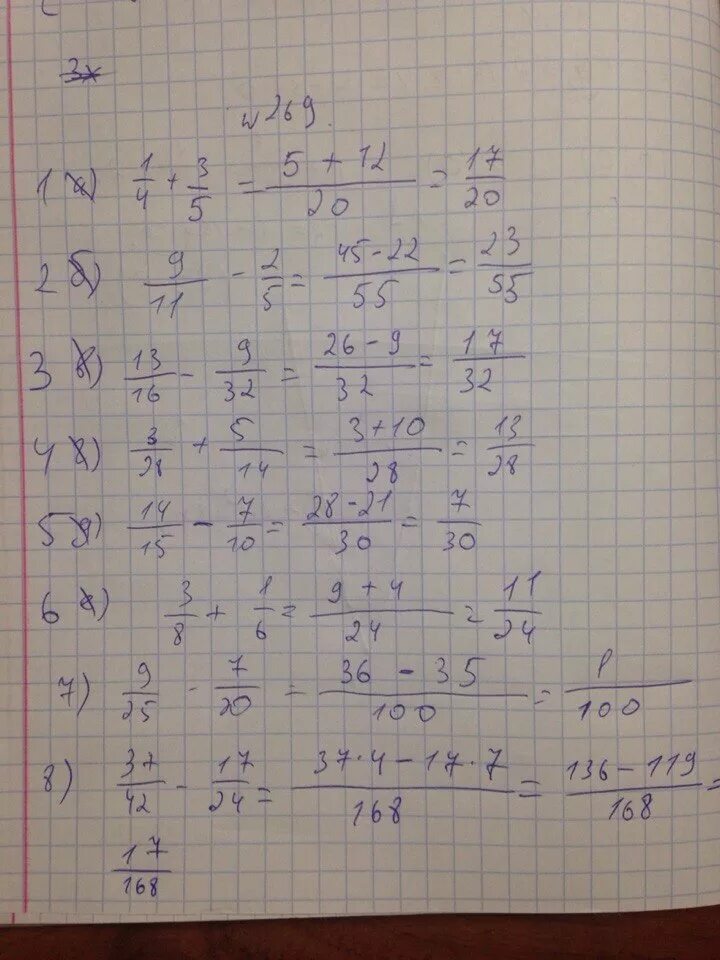 3x
№269.
1 а) 1/4 + 3/5 = (5 + 12)/20 = 17/20
2 б) 9/11 - 2/5 = (45 - 22)/55 = 23/55
3 в) 13/16 - 9/32 = (26 - 9)/32 = 17/32
4 г) 3/28 + 5/14 = (3 + 10)/28 = 13/28
5 д) 14/15 - 7/10 = (28 - 21)/30 = 7/30
6 е) 3/8 + 1/6 = (9 + 4)/24 = 11/24
7) 9/25 - 7/20 = (36 - 35)/100 = 1/100
8) 37/42 - 17/24 = (37·4 - 17·7)/168 = (136 - 119)/168 =
17/168